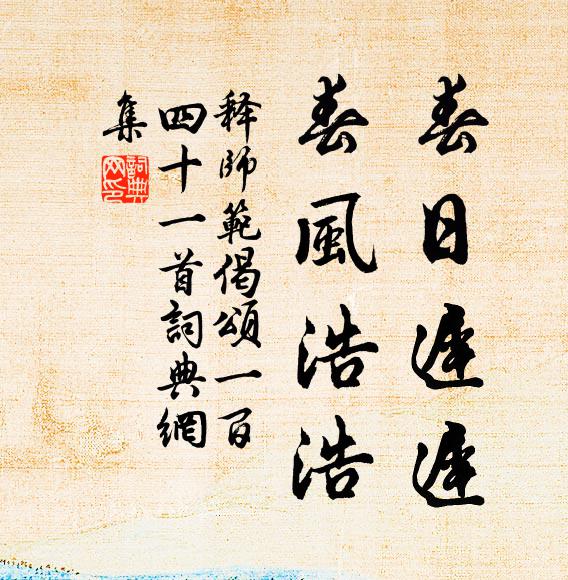 春日遲遲
春風浩浩
释師範偈頌一百
四十一首詞典網
集
詞典网印